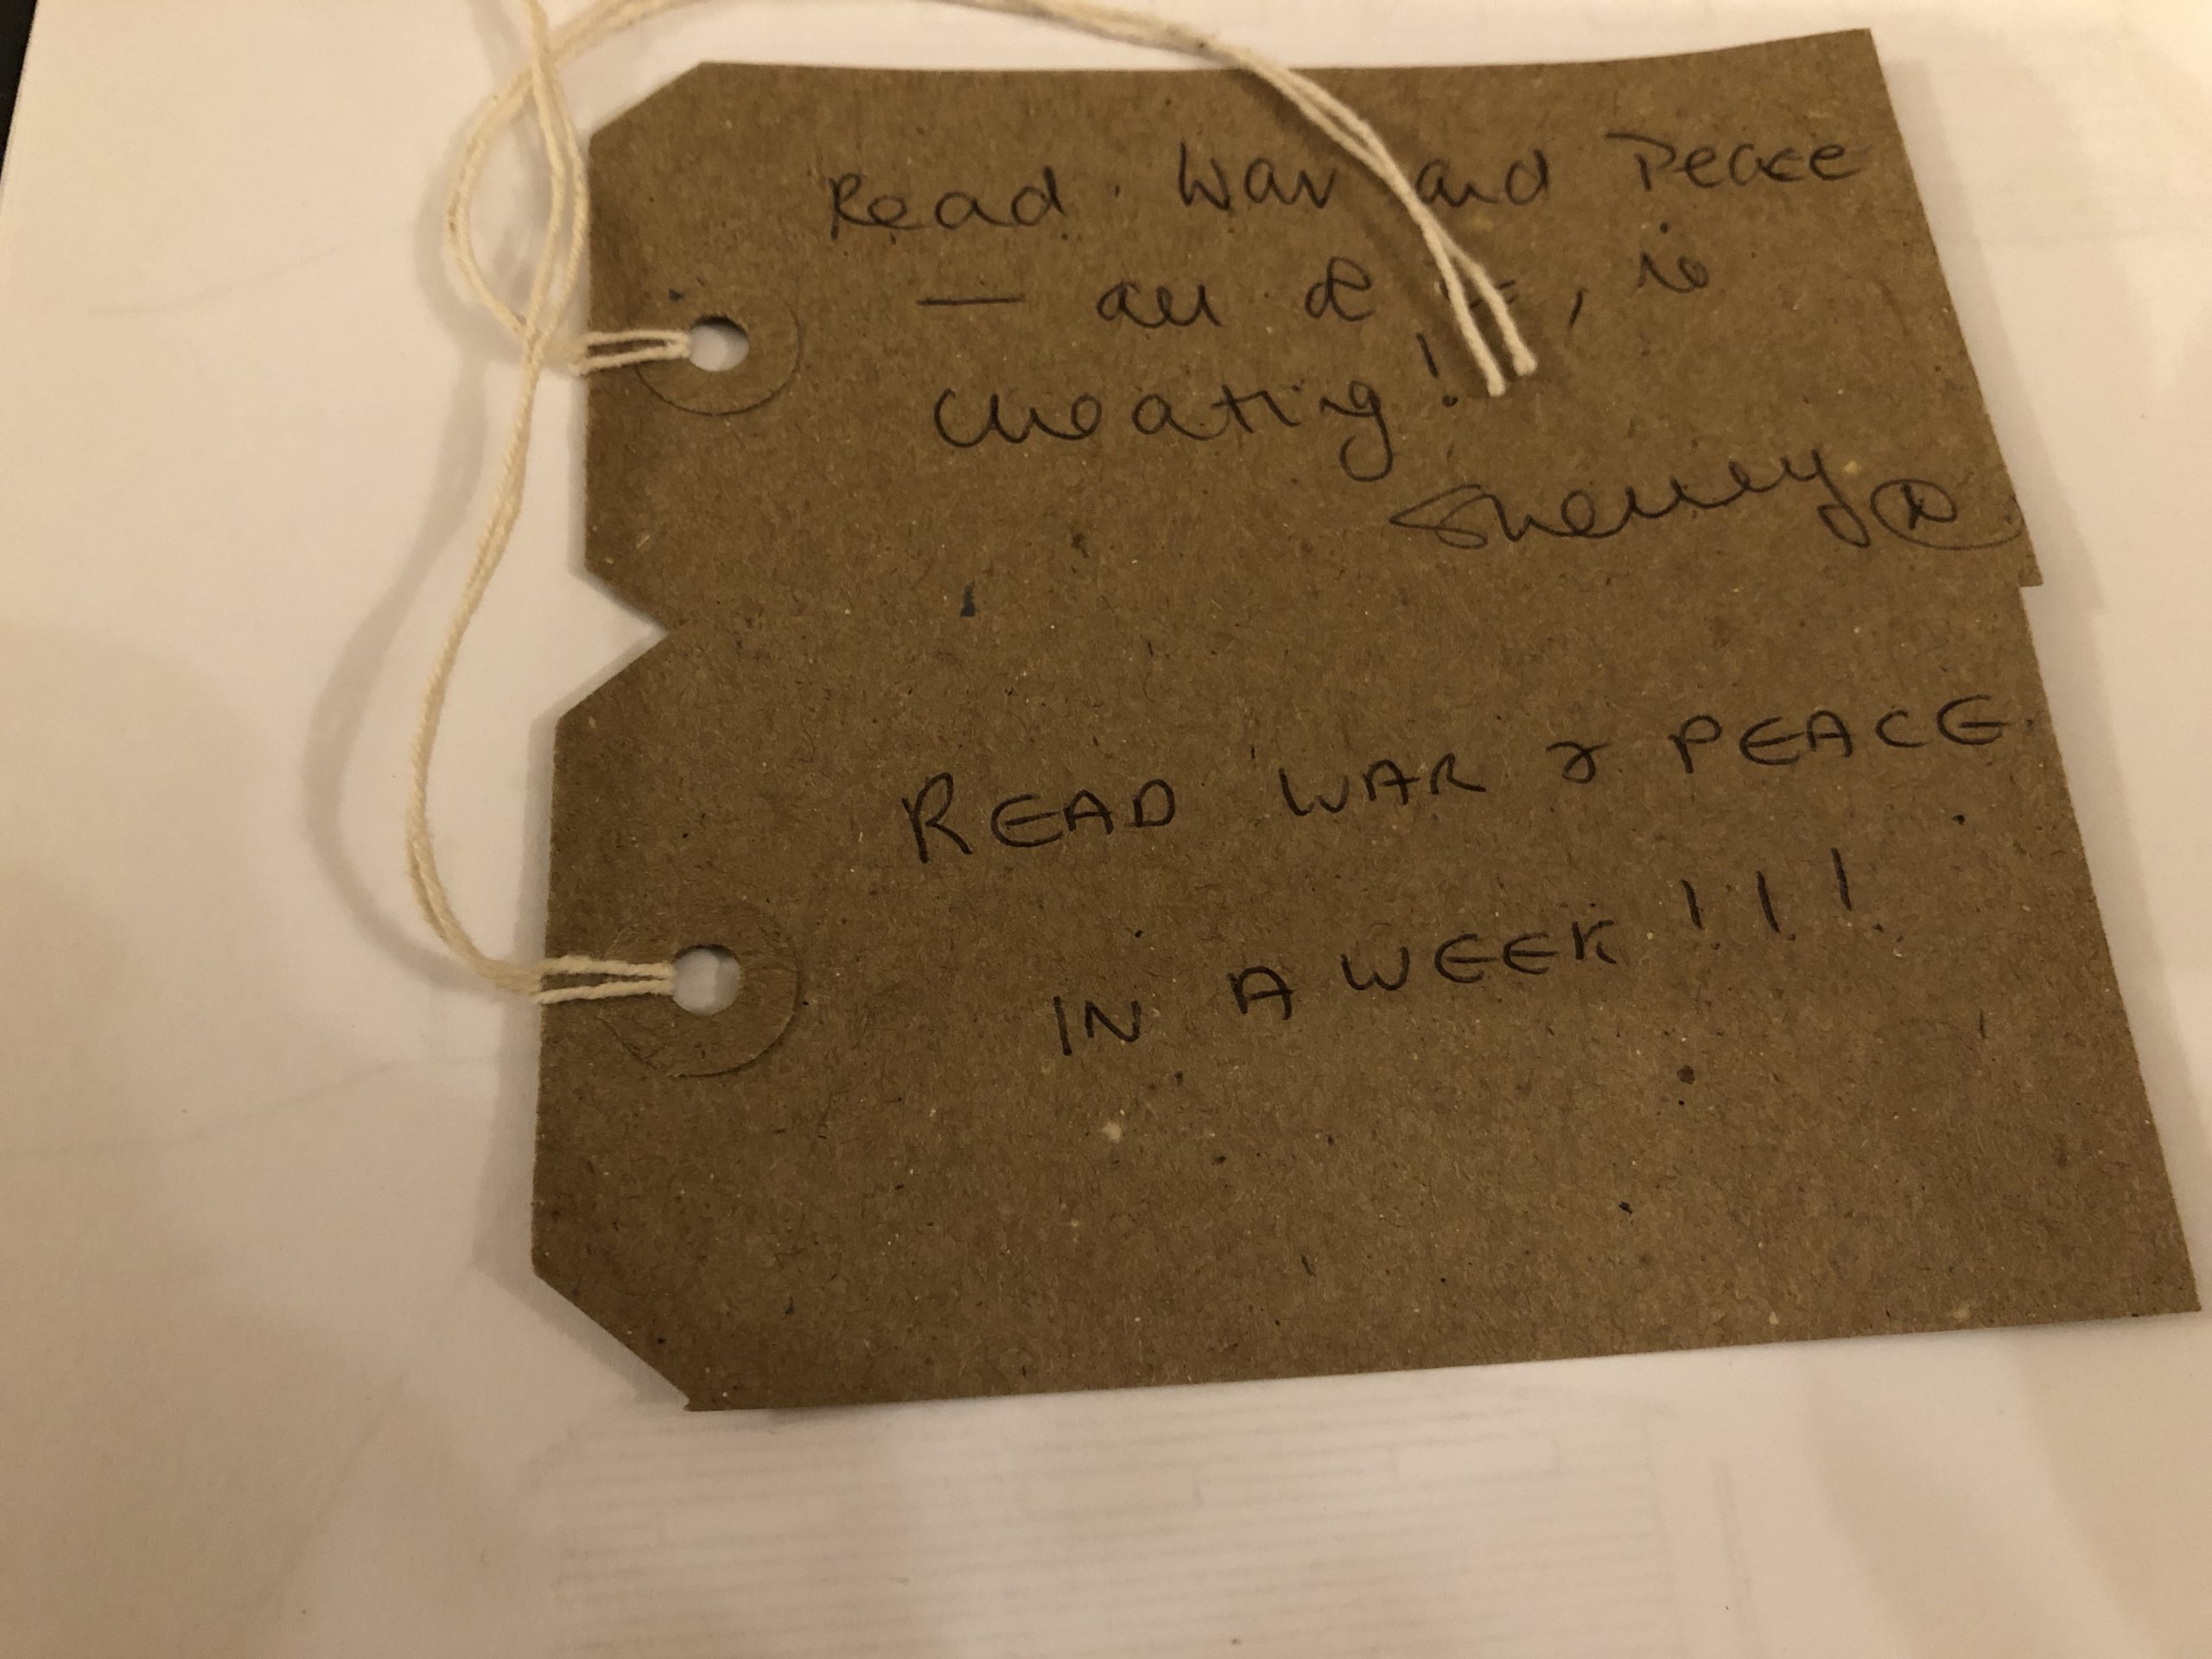 Read War and Peace
— all of , no
cheating!
Shelley
READ WAR & PEACE
IN A WEEK !!!